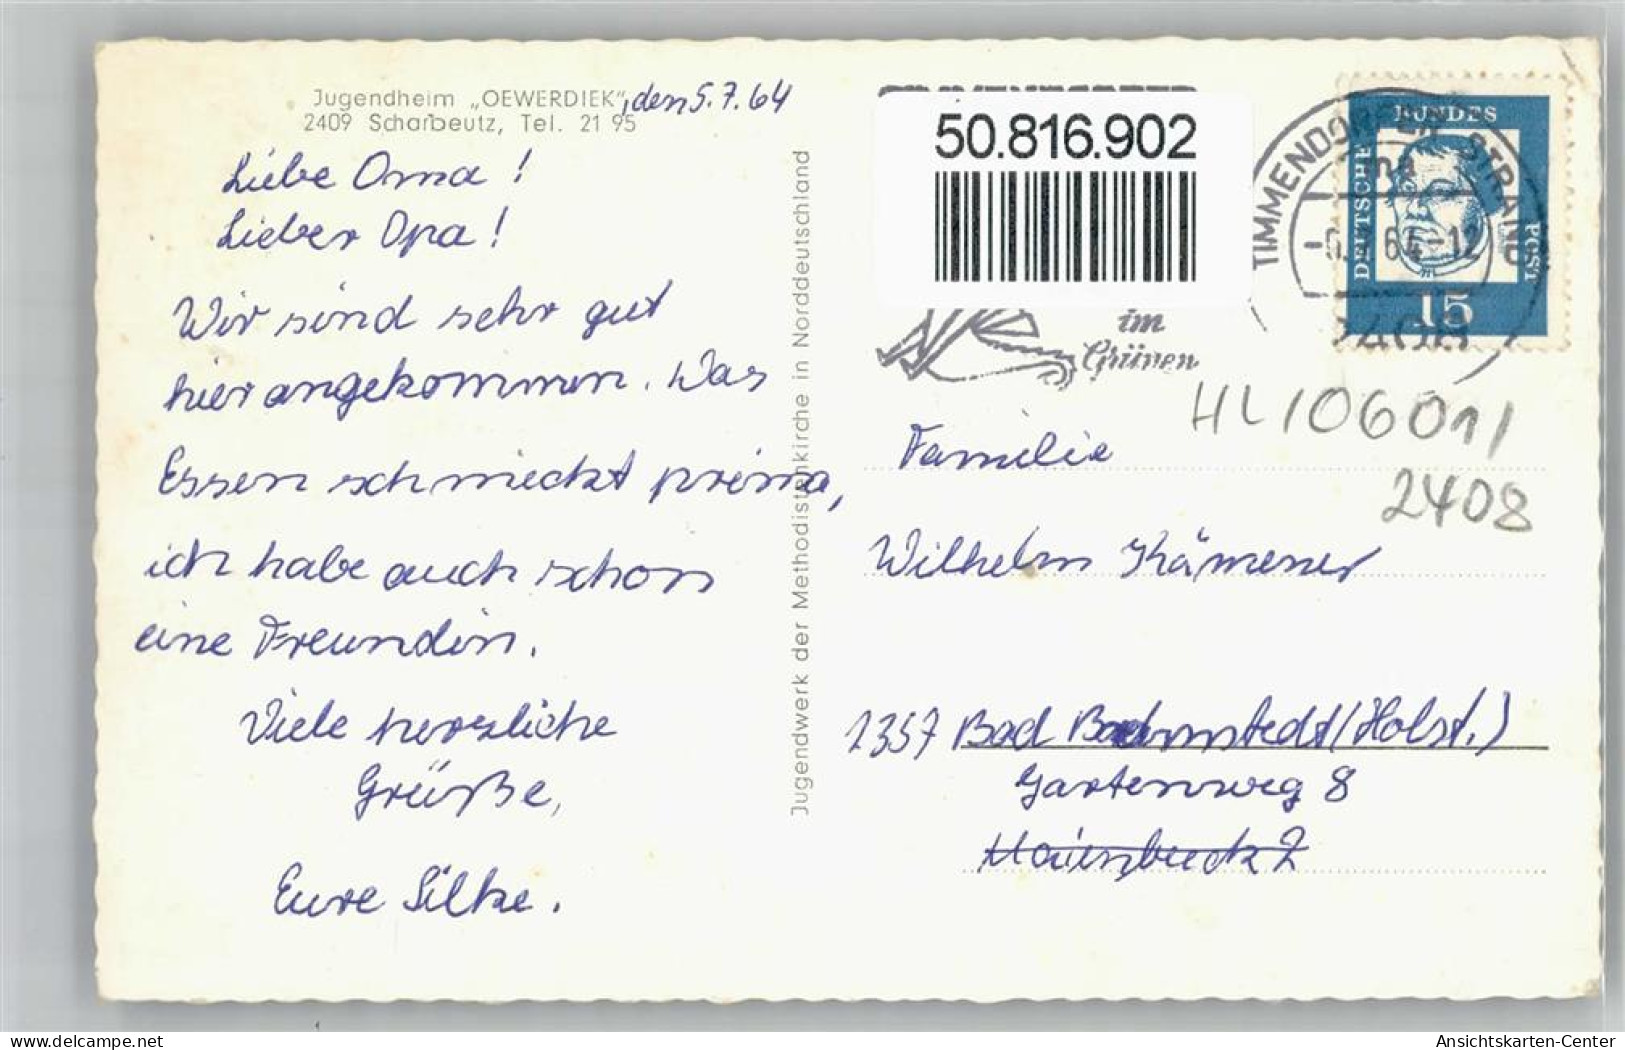 Jugendheim „OEWERDIEK“, den 5.7.64
2409 Scharbeutz, Tel. 21 95
Liebe Oma !
Lieber Opa !
Wir sind sehr gut
hier angekommen. Das
Essen schmeckt prima,
ich habe auch schon
eine Freundin.
Viele herzliche
Grüße,
Eure Silke.
Jugendwerk der Methodistenkirche in Norddeutschland
50.816.902
im
Grünen
TIMMENDORFER STRAND
na
64-12
2408
DEUTSCHE
BUNDES
POST
15
HL/0601/
2408
Familie
Wilhelm Kämener
2357 Bad Bramstedt (Holst.)
Gartenweg 8
delcampe.net
Ansichtskarten-Center